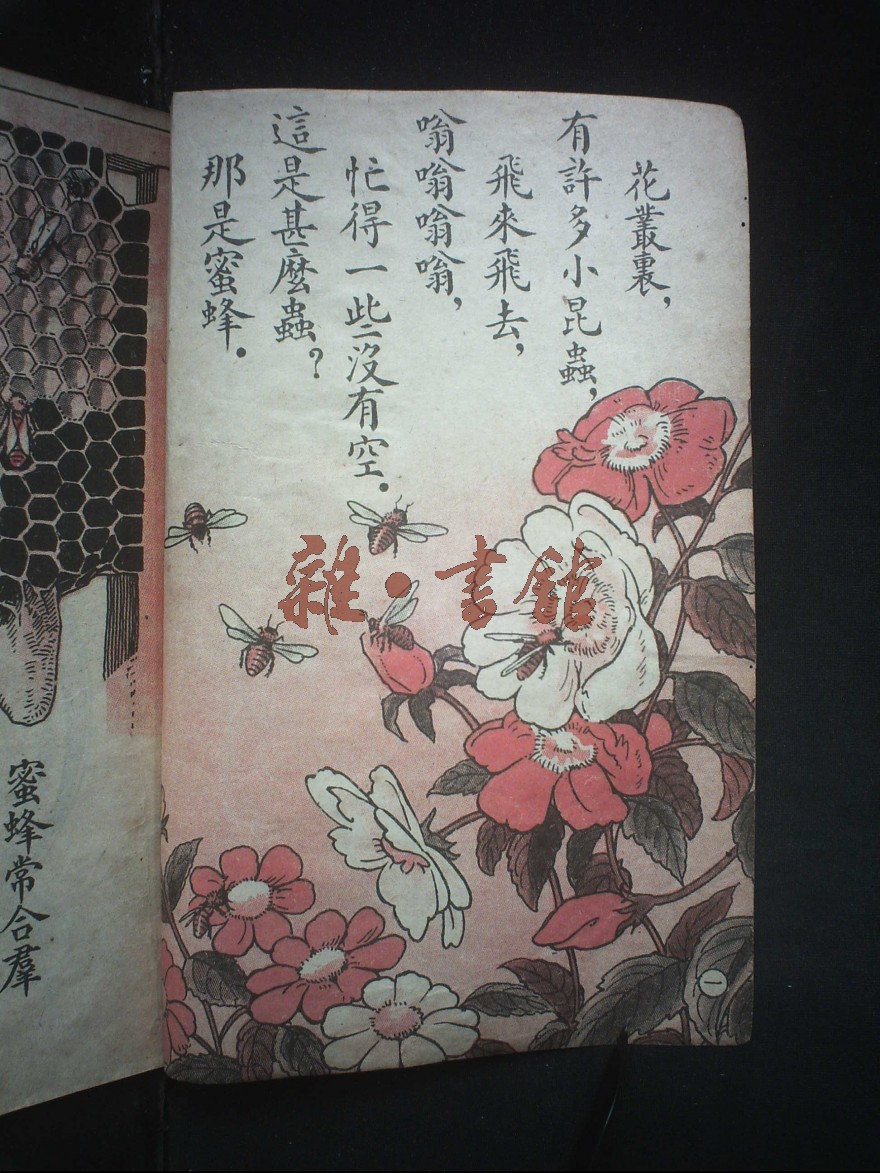 花叢裏，
有許多小昆蟲，
飛來飛去，
嗡嗡嗡嗡，
忙得一些沒有空．
這是甚麼蟲？
那是蜜蜂．
雜·書館
㊀
蜜蜂常合羣